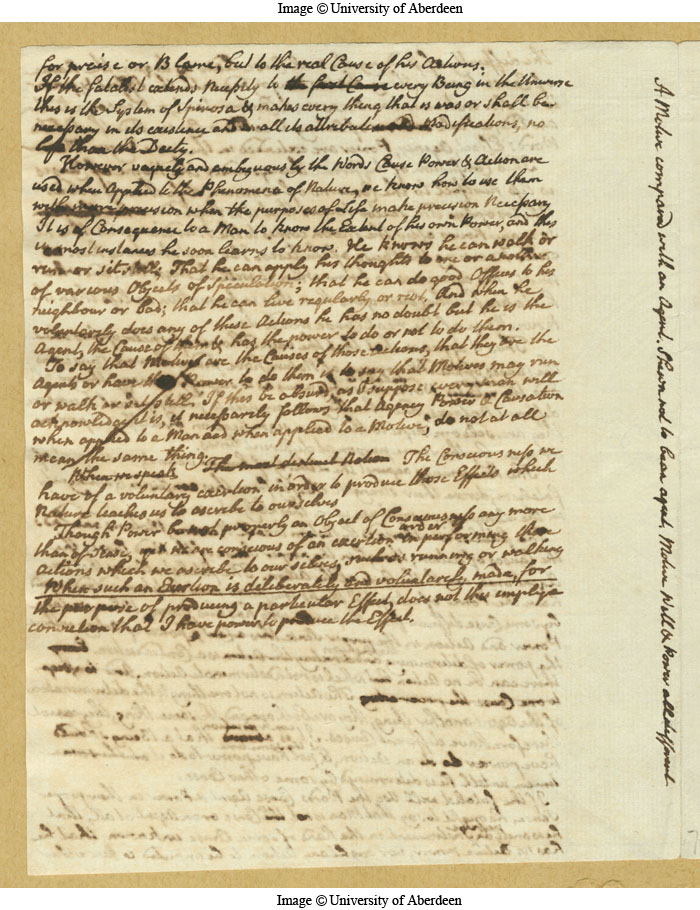 Image © University of Aberdeen
for praise or Blame, but to the real Cause of his Actions.
If the fatalist extends Necessity to the first Cause every Being in the Universe
this is the System of Spinosa & makes every thing that is was or shall be
necessary in its existence and in all its attributes Modifications, no
less than the Deity.
However vaguely and ambiguously the Words Cause Power & Action are
used when applied to the Phenomena of Nature, we know how to use them
with more precision when the purposes of Life make precision Necessary
It is of Consequence to a Man to know the Extent of his own Power, and this
in most instances he soon learns to know. He knows he can walk or
run or sit still That he can apply his thoughts to one or another
of various Objects of Speculation; that he can do good Offices to his
neighbour or bad; that he can live regularly or not, And when he
voluntarly does any of these Actions he has no doubt but he is the
Agent, the Cause of them & has the power to do or not to do them.
To say that Motives are the Causes of those Actions, that they are the
Agents or have the Power to do them is to say that Motives may run
or walk or sit still. If this be absurd, as I suppose every man will
acknowledge it is, it necessarily follows that Agency Power & Causation
when applied to a Man and when applied to a Motive, do not at all
mean the same thing.
When we speak The most distinct Notion The Consciousness we
have of a voluntary exertion in order to produce those Effects which
Nature teaches us to ascribe to ourselves
Though Power be not properly an Object of Consciousness any more
than of Sense, yet we are conscious of an exertion in order to performing those
actions which we ascribe to our selves, such as running or walking
When such an Exertion is deliberately and voluntarly made, for
the purpose of producing a particular Effect, does not this imply a
conviction that I have power to produce the Effect.
A Motive compared with an Agent. Shewn not to be an agent. Motive Will & Power all different
Image © University of Aberdeen